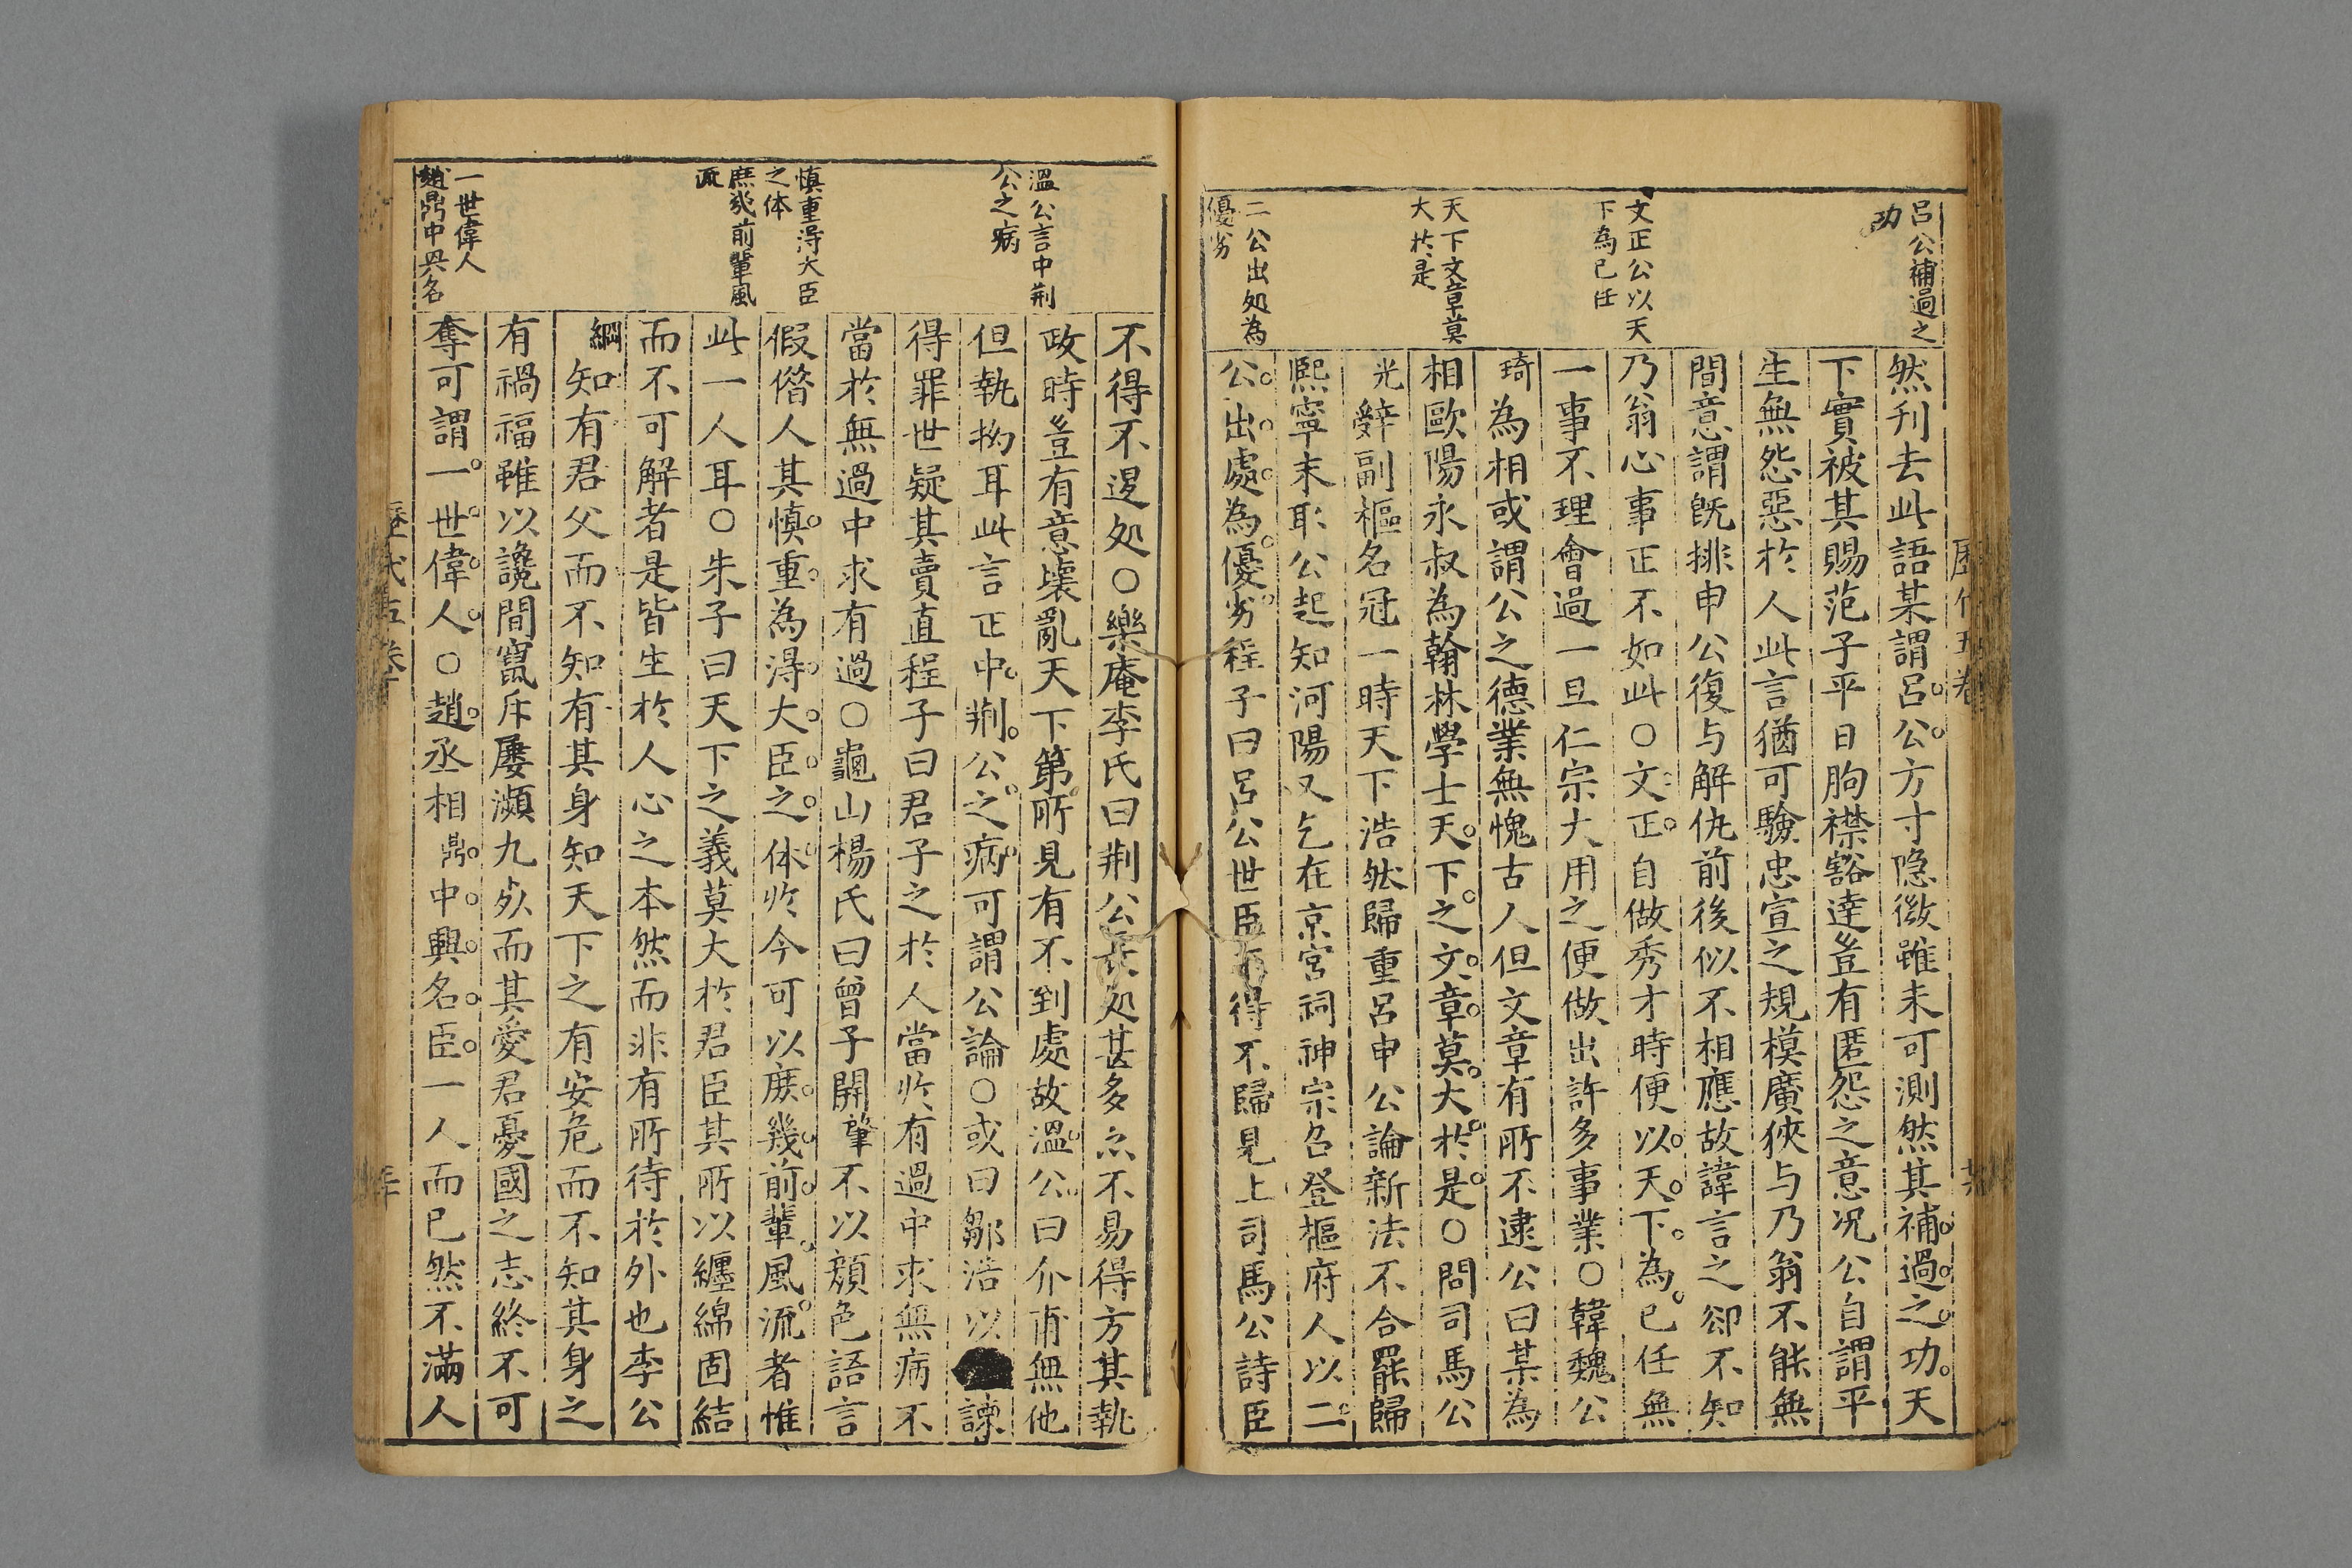 呂公補過之
功
文正公以天
下為己任
天下文章莫
大於是
二公出処為
優劣
然刋去此語某謂呂公方寸隐微雖未可測然其補過之功天
下實被其賜范子平日胸襟豁達豈有匿怨之意况公自謂平
生無怨惡於人此言猶可驗忠宣之規模廣狹与乃翁不能無
間意謂旣排申公復与解仇前後似不相應故諱言之卻不知
乃翁心事正不如此○文正自做秀才時便以天下為己任無
一事不理會過一旦仁宗大用之便做出許多事業○韓魏公
琦為相或謂公之德業無愧古人但文章有所不逮公曰某為
相歐陽永叔為翰林學士天下之文章莫大於是○問司馬公
光辭副樞名冠一時天下浩然歸重呂申公論新法不合罷歸
熙寧末公起知河陽又乞在京宮祠神宗召登樞府人以二
公出處為優劣程子曰呂公世臣不得不歸見上司馬公諍臣
歷代五卷
溫公言中荆
公之病
慎重得大臣
之体
庶幾前輩風
流
一世偉人
趙鼎中興名
不得不退処○樂庵李氏曰荆公長処甚多亦不易得方其執
政時豈有意壞亂天下第所見有不到處故溫公曰介甫無他
但執拗耳此言正中荆公之病可謂公論○或曰鄒浩以諫
得罪世疑其賣直程子曰君子之於人當於有過中求無病不
當於無過中求有過○龜山楊氏曰曾子開肇不以顔色語言
假僭人其慎重為得大臣之体於今可以庶幾前輩風流者惟
此一人耳○朱子曰天下之義莫大於君臣其所以纏綿固結
而不可解者是皆生於人心之本然而非有所待於外也李公
綱知有君父而不知有其身知天下之有安危而不知其身之
有禍福雖以讒間竄斥屢瀕九死而其愛君憂國之志終不可
奪可謂一世偉人○趙丞相鼎中興名臣一人而已然不滿人
歷代五卷